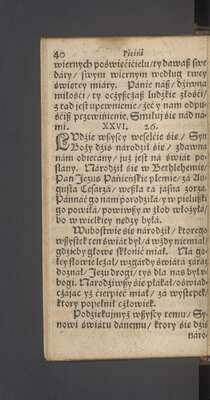 40 Pieśni
wiernych poświęcicielu/ ty dawaß swe
dary/ swym wiernym według twey
świętey miáry. Panie náß/ dziwna
miłości/ ty oczyśczaß ludzkie złości/
z rad iest upewnienie/ że cy nam odpu-
ściß przewinienie. Smiłuy sie nád ná-
mi. XXVI. 26.
LVdzie wßyscy weselcie sie/ Syn
Boży dziś národził sie/ zdawná
nam obiecány/ już jest ná świát po-
słány. Národził sie w Bethlehemie/
Pan Jezus Páńieńskie plemie/ zá Au-
gustá Cesárzá/ weßłá tá jásna zorzá.
Pánná go nam porodziłá/ y w pieluß-
ki go powiłá/ powiwßy w żłob włożyłá/
bo w wielkiey nędzy byłá.
Wubostwie sie národził/ ktorego
wßystek ten świát był/ á wżdy niemiał
gdzieby głowe skłonić miał. Ná go-
łey słomie leżał/ wzgárdy świátá záraz
doznał/ Jezu drogi/ tyś dla nas był v-
bogi. Národziwßy sie płákał/ oświad-
czájąc yż cierpieć miał/ zá występek/
ktory popełnił człowiek.
Podziękuymyż wßyscy temu/ Sy-
nowi świátu dánemu/ ktory sie dziś
náro-